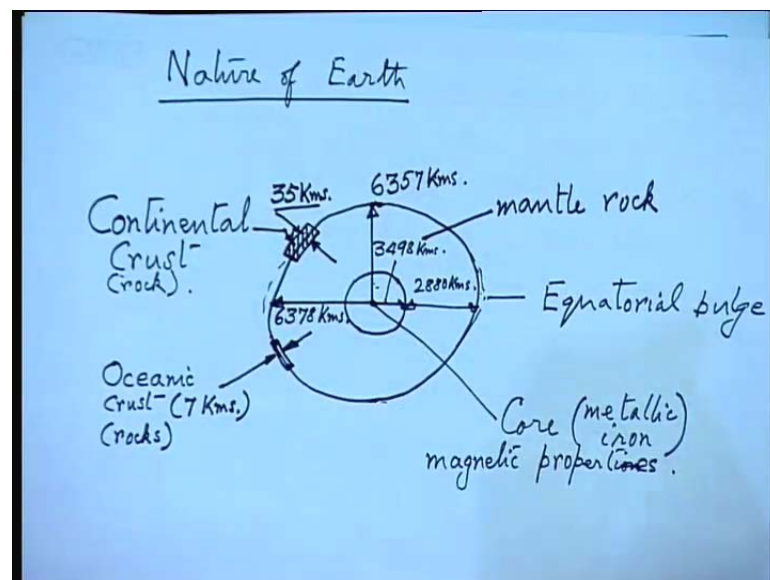 Nature of Earth
35Kms.
6357Kms.
Continental
Crust
(rock).
mantle rock
3498Kms.
2880Kms.
Equatorial bulge
6378Kms.
Oceanic
crust (7 Kms.)
(rocks)
Core (metallic
iron)
magnetic properties.